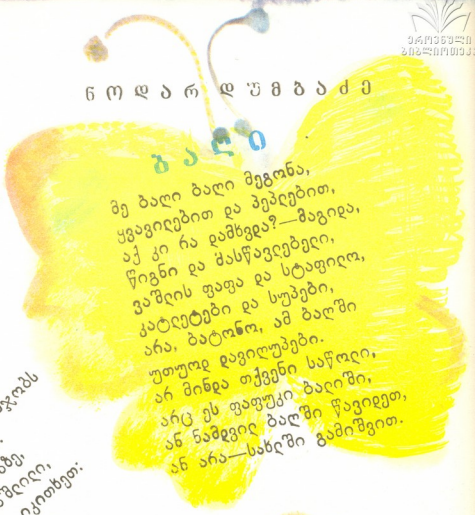 ეროვნული
ბიბლიოთეკა
ნოდარ დუმბაძე
ბაღი
მე ბაღი ბაღი მეგონა,
ყვავილებით და პეპლებით,
აქ კი რა დამხვდა?—მაგიდა,
წიგნი და მასწავლებელი,
ვაშლის ფაფა და სტაფილო,
კატლეტები და სუპები,
არა, ბატონო, ამ ბაღში
უთუოდ დავიღუპები.
არ მინდა თქვენი საწოლი,
არც ეს ფაფუკი ბალიში,
ან ნამდვილ ბაღში წავიდეთ,
ან არა—სახლში გამიშვით.